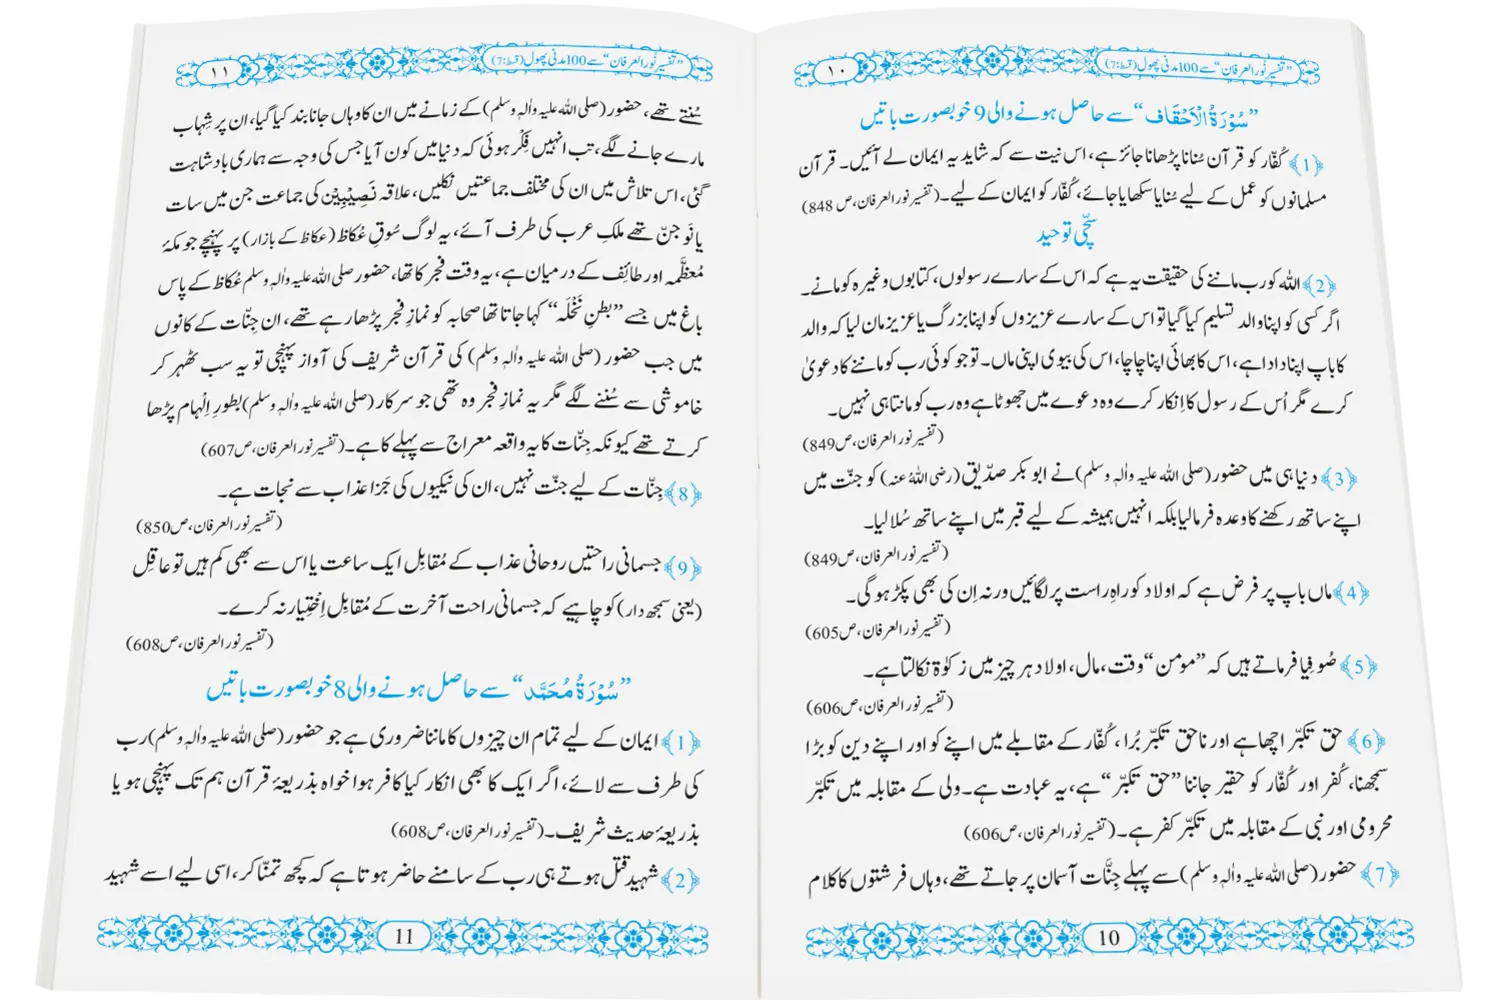 ”تفسیر نُورالعرفان“ سے 100 مدنی پھول (قسط:7)
۱۰
”سُوْرَۃُ الْاَحْقَاف“ سے حاصل ہونے والی 9 خوبصورت باتیں
﴿1﴾ کُفّار کو قرآن سُنانا پڑھانا جائز ہے، اس نیت سے کہ شاید یہ ایمان لے آئیں۔ قرآن
مسلمانوں کو عمل کے لیے سُنایا سکھایا جائے، کُفّار کو ایمان کے لیے۔ (تفسیر نور العرفان، ص 848)
سچّی توحید
﴿2﴾ اللہ کو رب ماننے کی حقیقت یہ ہے کہ اس کے سارے رسولوں، کتابوں وغیرہ کو مانے۔
اگر کسی کو اپنا والد تسلیم کیا گیا تو اس کے سارے عزیزوں کو اپنا بزرگ یا عزیز مان لیا کہ والد
کا باپ اپنا دادا ہے، اس کا بھائی اپنا چاچا، اس کی بیوی اپنی ماں۔ تو جو کوئی رب کو ماننے کا دعویٰ
کرے مگر اُس کے رسول کا اِنکار کرے وہ دعوے میں جھوٹا ہے وہ رب کو مانتا ہی نہیں۔
(تفسیر نور العرفان، ص849)
﴿3﴾ دنیا ہی میں حضور (صلی اللہ علیہ واٰلہٖ وسلم) نے ابو بکر صدّیق (رضی اللہُ عنہ) کو جنّت میں
اپنے ساتھ رکھنے کا وعدہ فرما لیا بلکہ انہیں ہمیشہ کے لیے قبر میں اپنے ساتھ سُلا لیا۔
(تفسیر نور العرفان، ص849)
﴿4﴾ ماں باپ پر فرض ہے کہ اولاد کو راہِ راست پر لگائیں ورنہ اِن کی بھی پکڑ ہوگی۔
(تفسیر نور العرفان، ص605)
﴿5﴾ صُوفیا فرماتے ہیں کہ ”مومن“ وقت، مال، اولاد ہر چیز میں زکوٰۃ نکالتا ہے۔
(تفسیر نور العرفان، ص606)
﴿6﴾ حق تکبّر اچھا ہے اور ناحق تکبّر بُرا، کُفّار کے مقابلے میں اپنے کو اور اپنے دین کو بڑا
سمجھنا، کُفر اور کُفّار کو حقیر جاننا ”حق تکبّر“ ہے، یہ عبادت ہے۔ ولی کے مقابلہ میں تکبّر
محرومی اور نبی کے مقابلہ میں تکبّر کفر ہے۔ (تفسیر نور العرفان، ص606)
﴿7﴾ حضور (صلی اللہ علیہ واٰلہٖ وسلم) سے پہلے جِنَّات آسمان پر جاتے تھے، وہاں فرشتوں کا کلام
10
”تفسیر نُورالعرفان“ سے 100 مدنی پھول (قسط:7)
۱۱
سُنتے تھے، حضور (صلی اللہ علیہ واٰلہٖ وسلم) کے زمانے میں ان کا وہاں جانا بند کیا گیا، ان پر شِہاب
مارے جانے لگے، تب انہیں فِکْر ہوئی کہ دنیا میں کون آیا جس کی وجہ سے ہماری بادشاہت
گئی، اس تلاش میں ان کی مختلف جماعتیں نکلیں، علاقہ نَصِیْبِیْن کی جماعت جن میں سات
یا نَو جنّ تھے ملکِ عرب کی طرف آئے، یہ لوگ سُوقِ عُکاظ (عکاظ کے بازار) پر پہنچے جو مکۂ
مُعظَّمہ اور طائِف کے درمیان ہے، یہ وقت فجر کا تھا، حضور صلی اللہ علیہ واٰلہٖ وسلم عُکاظ کے پاس
باغ میں جسے ”بطنِ نَخْلَہ“ کہا جاتا تھا صحابہ کو نمازِ فجر پڑھا رہے تھے، ان جِنَّات کے کانوں
میں جب حضور (صلی اللہ علیہ واٰلہٖ وسلم) کی قرآن شریف کی آواز پہنچی تو یہ سب ٹھہر کر
خاموشی سے سُننے لگے مگر یہ نمازِ فجر وہ تھی جو سرکار (صلی اللہ علیہ واٰلہٖ وسلم) بطورِ اِلْہام پڑھا
کرتے تھے کیونکہ جِنّات کا یہ واقعہ معراج سے پہلے کا ہے۔ (تفسیر نور العرفان، ص607)
﴿8﴾ جِنّات کے لیے جنّت نہیں، ان کی نیکیوں کی جَزا عذاب سے نجات ہے۔
(تفسیر نور العرفان، ص850)
﴿9﴾ جسمانی راحتیں روحانی عذاب کے مُقابِل ایک ساعت یا اس سے بھی کم ہیں تو عاقِل
(یعنی سمجھ دار) کو چاہیے کہ جسمانی راحت آخرت کے مُقابِل اِخْتِیار نہ کرے۔
(تفسیر نور العرفان، ص608)
”سُوْرَۃُ مُحَمَّد“ سے حاصل ہونے والی 8 خوبصورت باتیں
﴿1﴾ ایمان کے لیے تمام ان چیزوں کا ماننا ضروری ہے جو حضور (صلی اللہ علیہ واٰلہٖ وسلم) رب
کی طرف سے لائے، اگر ایک کا بھی انکار کیا کافر ہوا خواہ بذریعۂ قرآن ہم تک پہنچی ہو یا
بذریعۂ حدیث شریف۔ (تفسیر نور العرفان، ص608)
﴿2﴾ شہید قتل ہوتے ہی رب کے سامنے حاضر ہوتا ہے کہ کچھ تمنّا کر، اسی لیے اسے شہید
11